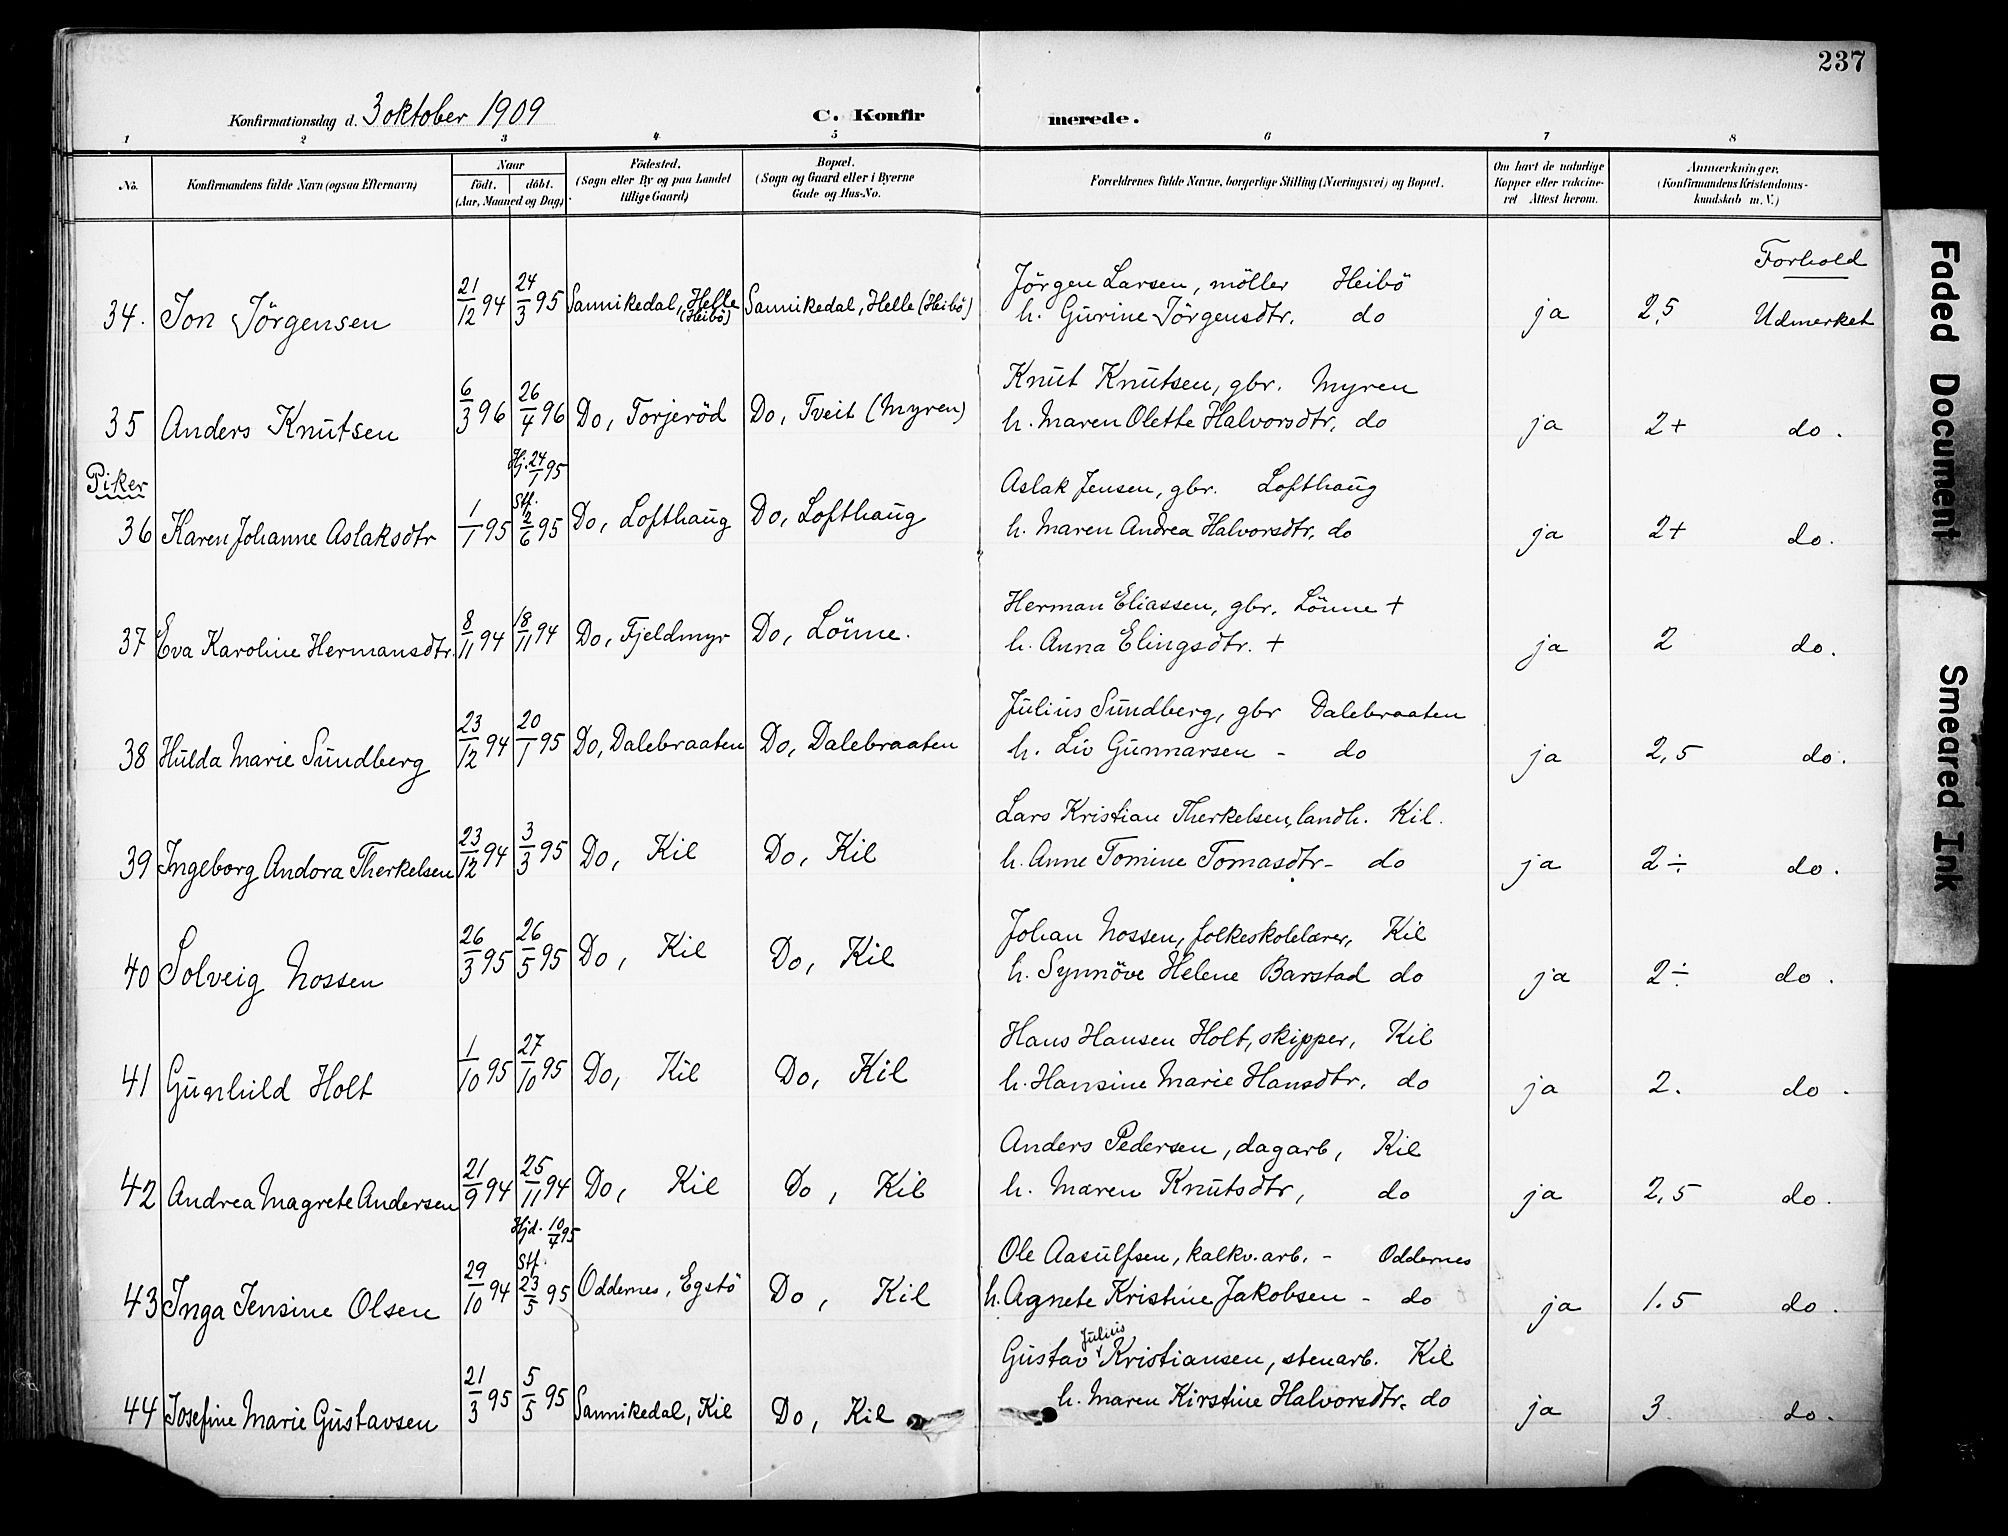 237
Konfirmationsdag d. 3 oktober 1909 C. Konfirmerede.
1 2 3 4 5 6 7 8
No.
Konfirmandens fulde Navn (ogsaa Efternavn)
Naar
født. døbt.
(Aar, Maaned og Dag)
Fødested.
(Sogn eller By og paa Landet
tillige Gaard)
Bopæl.
(Sogn og Gaard eller i Byerne
Gade og Hus-No.
Forældrenes fulde Navne, borgerlige Stilling (Næringsvei) og Bopæl.
Om havt de naturlige
Kopper eller vakcine-
ret Attest herom.
Anmærkninger,
(Konfirmandens Kristendoms-
kundskab m. V.)
Forhold
Jörgen Larsen, möller Heibö
34. Jon Jörgensen 21/12 94 24/3 95 Sannikedal, Helle (Heibö) Sannikedal, Helle (Heibö) h. Gurine Jörgensdtr. do ja 2,5 Udmerket
Knut Knutsen, gbr. Myren
35 Anders Knutsen 6/3 96 26/4 96 Do, Torjeröd Do, Tveit (Myren) h. Maren Olette Halvorsdtr, do ja 2+ do.
Piker
Hj. 24/1 95
Aslak Jensen, gbr. Lofthaug
36 Karen Johanne Aslaksdtr 1/1 95 Stf. 2/6 95 Do, Lofthaug Do, Lofthaug h. Maren Andrea Halvorsdtr, do ja 2+ do.
Herman Eliassen, gbr. Lönne +
37 Eva Karoline Hermansdtr. 8/11 94 18/11 94 Do, Fjeldmyr Do, Lönne. h. Anna Elingsdtr. + ja 2 do.
Julius Sundberg, gbr Dalebraaten
38 Hulda Marie Sundberg 23/12 94 20/1 95 Do, Dalebraaten Do, Dalebraaten h. Liv Gunnarsen - do ja 2,5 do.
Lars Kristian Therkelsen, landh. Kil.
39 Ingeborg Andora Therkelsen 23/12 94 3/3 95 Do, Kil Do, Kil h. Anne Tomine Tomasdtr- do ja 2÷ do.
Johan Nossen, folkeskolelærer, Kil
40 Solveig Nossen 26/3 95 26/5 95 Do, Kil Do, Kil h. Synnöve Helene Barstad do ja 2÷ do.
Hans Hansen Holt, skipper, Kil
41 Gunhild Holt 1/10 95 27/10 95 Do, Kil Do, Kil h. Hansine Marie Hansdtr. do ja 2. do.
Anders Pedersen, dagarb, Kil
42 Andrea Magrete Andersen 21/9 94 25/11 94 Do, Kil Do, Kil h. Maren Knutsdtr, do ja 2,5 do.
Hjd. 10/4 95
Ole Aasulfsen, kalkv.arb. - Oddernes
43 Inga Jensine Olsen 29/10 94 Stf. 23/5 95 Oddernes, Egstö Do, Kil h. Agnete Kristine Jakobsen - do ja 1.5 do.
Julius
Gustav Kristiansen, stenarb. Kil
44 Josefine Marie Gustavsen 21/3 95 5/5 95 Sannikedal, Kil Do, Kil h. Maren Kirstine Halvorsdtr. do ja 3 do.
Faded Document
Smeared Ink